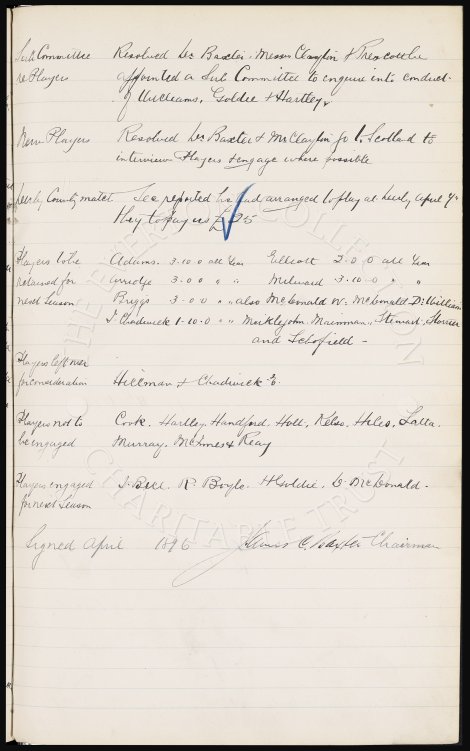 Sub Committee Resolved Dr Baxter, Messrs Clayton & Prescott be
re Players appointed a Sub Committee to enquire into conduct
of Williams, Goldie & Hartley.
New Players Resolved Dr Baxter & Mr Clayton go to Scotland to
interview Players & engage where possible
County match Sec reported he had arranged to play at April 4th
they to pay us £25
Players to be Adams. 3-10-0 all Year Elliott 3-0-0 all Year
retained for Arridge 3-0-0 " " Milward 3-10-0 " "
next Season Briggs 3-0-0 " " also McDonald W. McDonald D. William
T Chadwick 1-10-0 " " Meiklejohn, Mainman, Stewart, Storrier
and Schofield -
Players left over
for consideration Hillman & Chadwick E.
Players not to Cook, Hartley, Handford, Holt, Kelso, Latta.
be engaged Murray, McInnes & Reay
Players engaged J. Bell. R. Boyle. H Goldie. D. McDonald.
for next Season
Signed April 1896 James C. Baxter Chairman
THE EVERTON COLLECTION
CHARITABLE TRUST